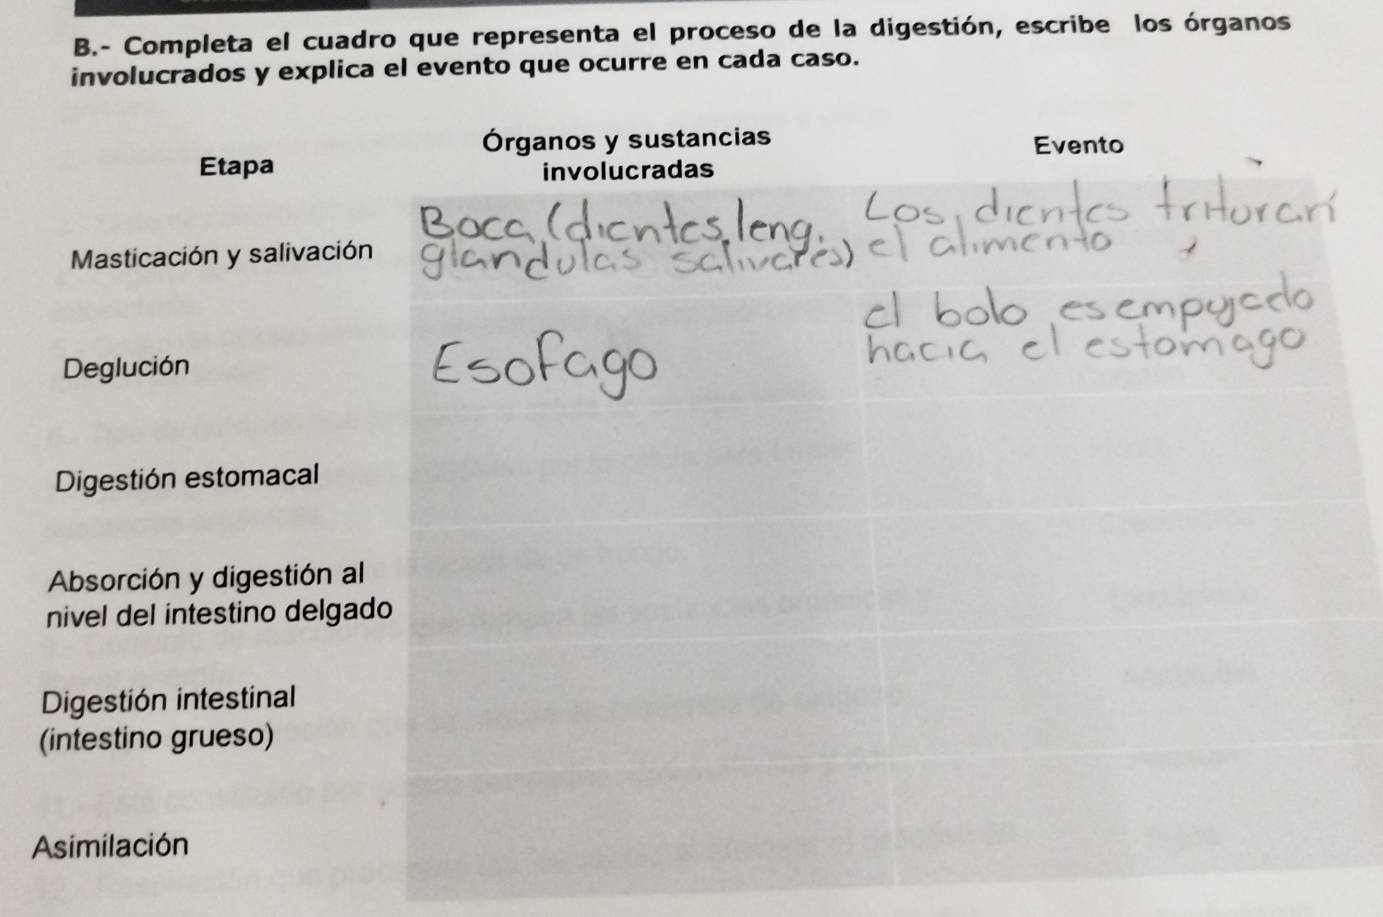 B.- Completa el cuadro que representa el proceso de la digestión, escribe los órganos
involucrados y explica el evento que ocurre en cada caso.
Etapa
Órganos y sustancias
involucradas
Evento
Masticación y salivación
Boca, (dientes, leng.
glandulas salivares)
Los dientes trituran
el alimento
Deglución
Esofago
el bolo es empujado
hacia el estomago
Digestión estomacal
Absorción y digestión al
nivel del intestino delgado
Digestión intestinal
(intestino grueso)
Asimilación